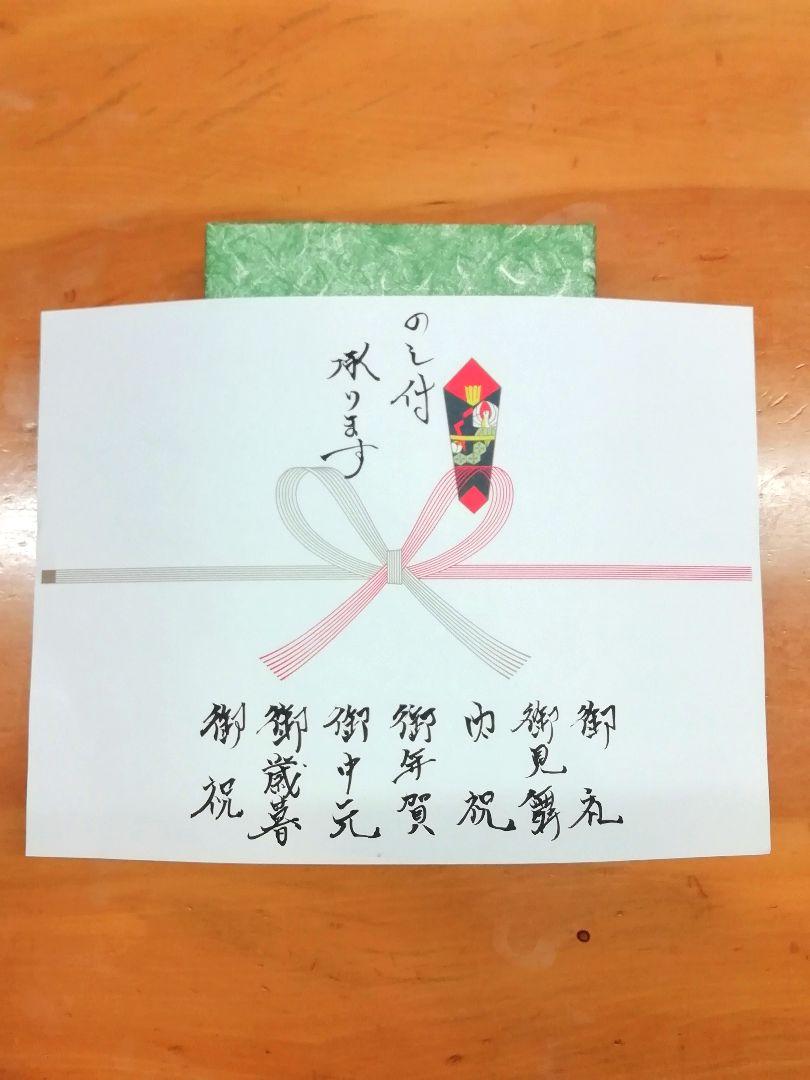 のし付
承ります
御礼
御見舞
内祝
御年賀
御中元
御歳暮
御祝